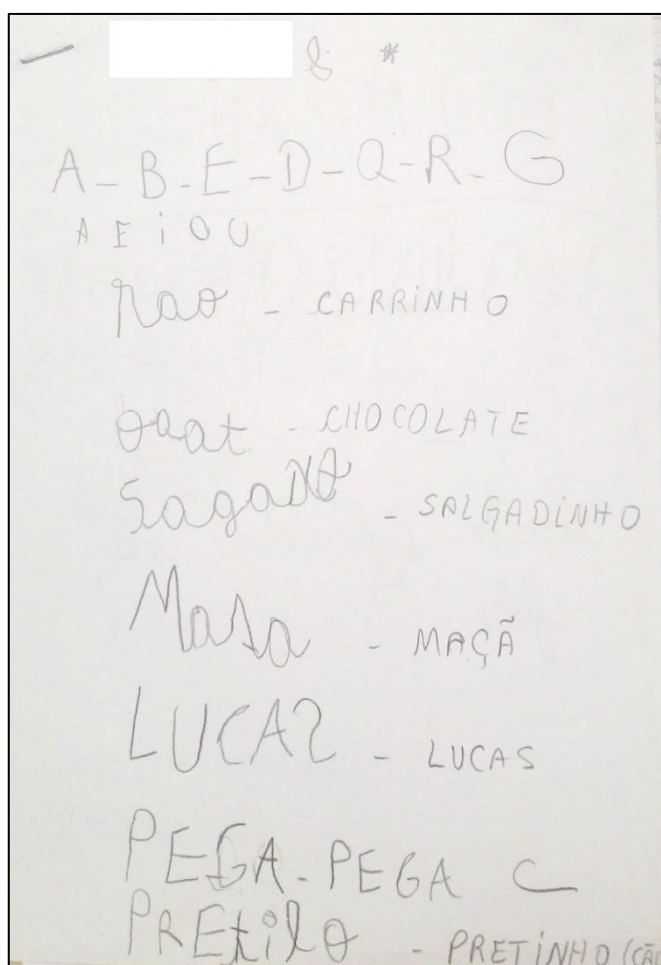 *
A-B-E-D-Q-R-G
A E i O U
rao - CARRiNHO
oaat - CHOCOLATE
- SALGADiNHO
Masa - MAÇÃ
LUCAS - LUCAS
PEGA-PEGA C
PREtilo - PRETiNHO (CÃO